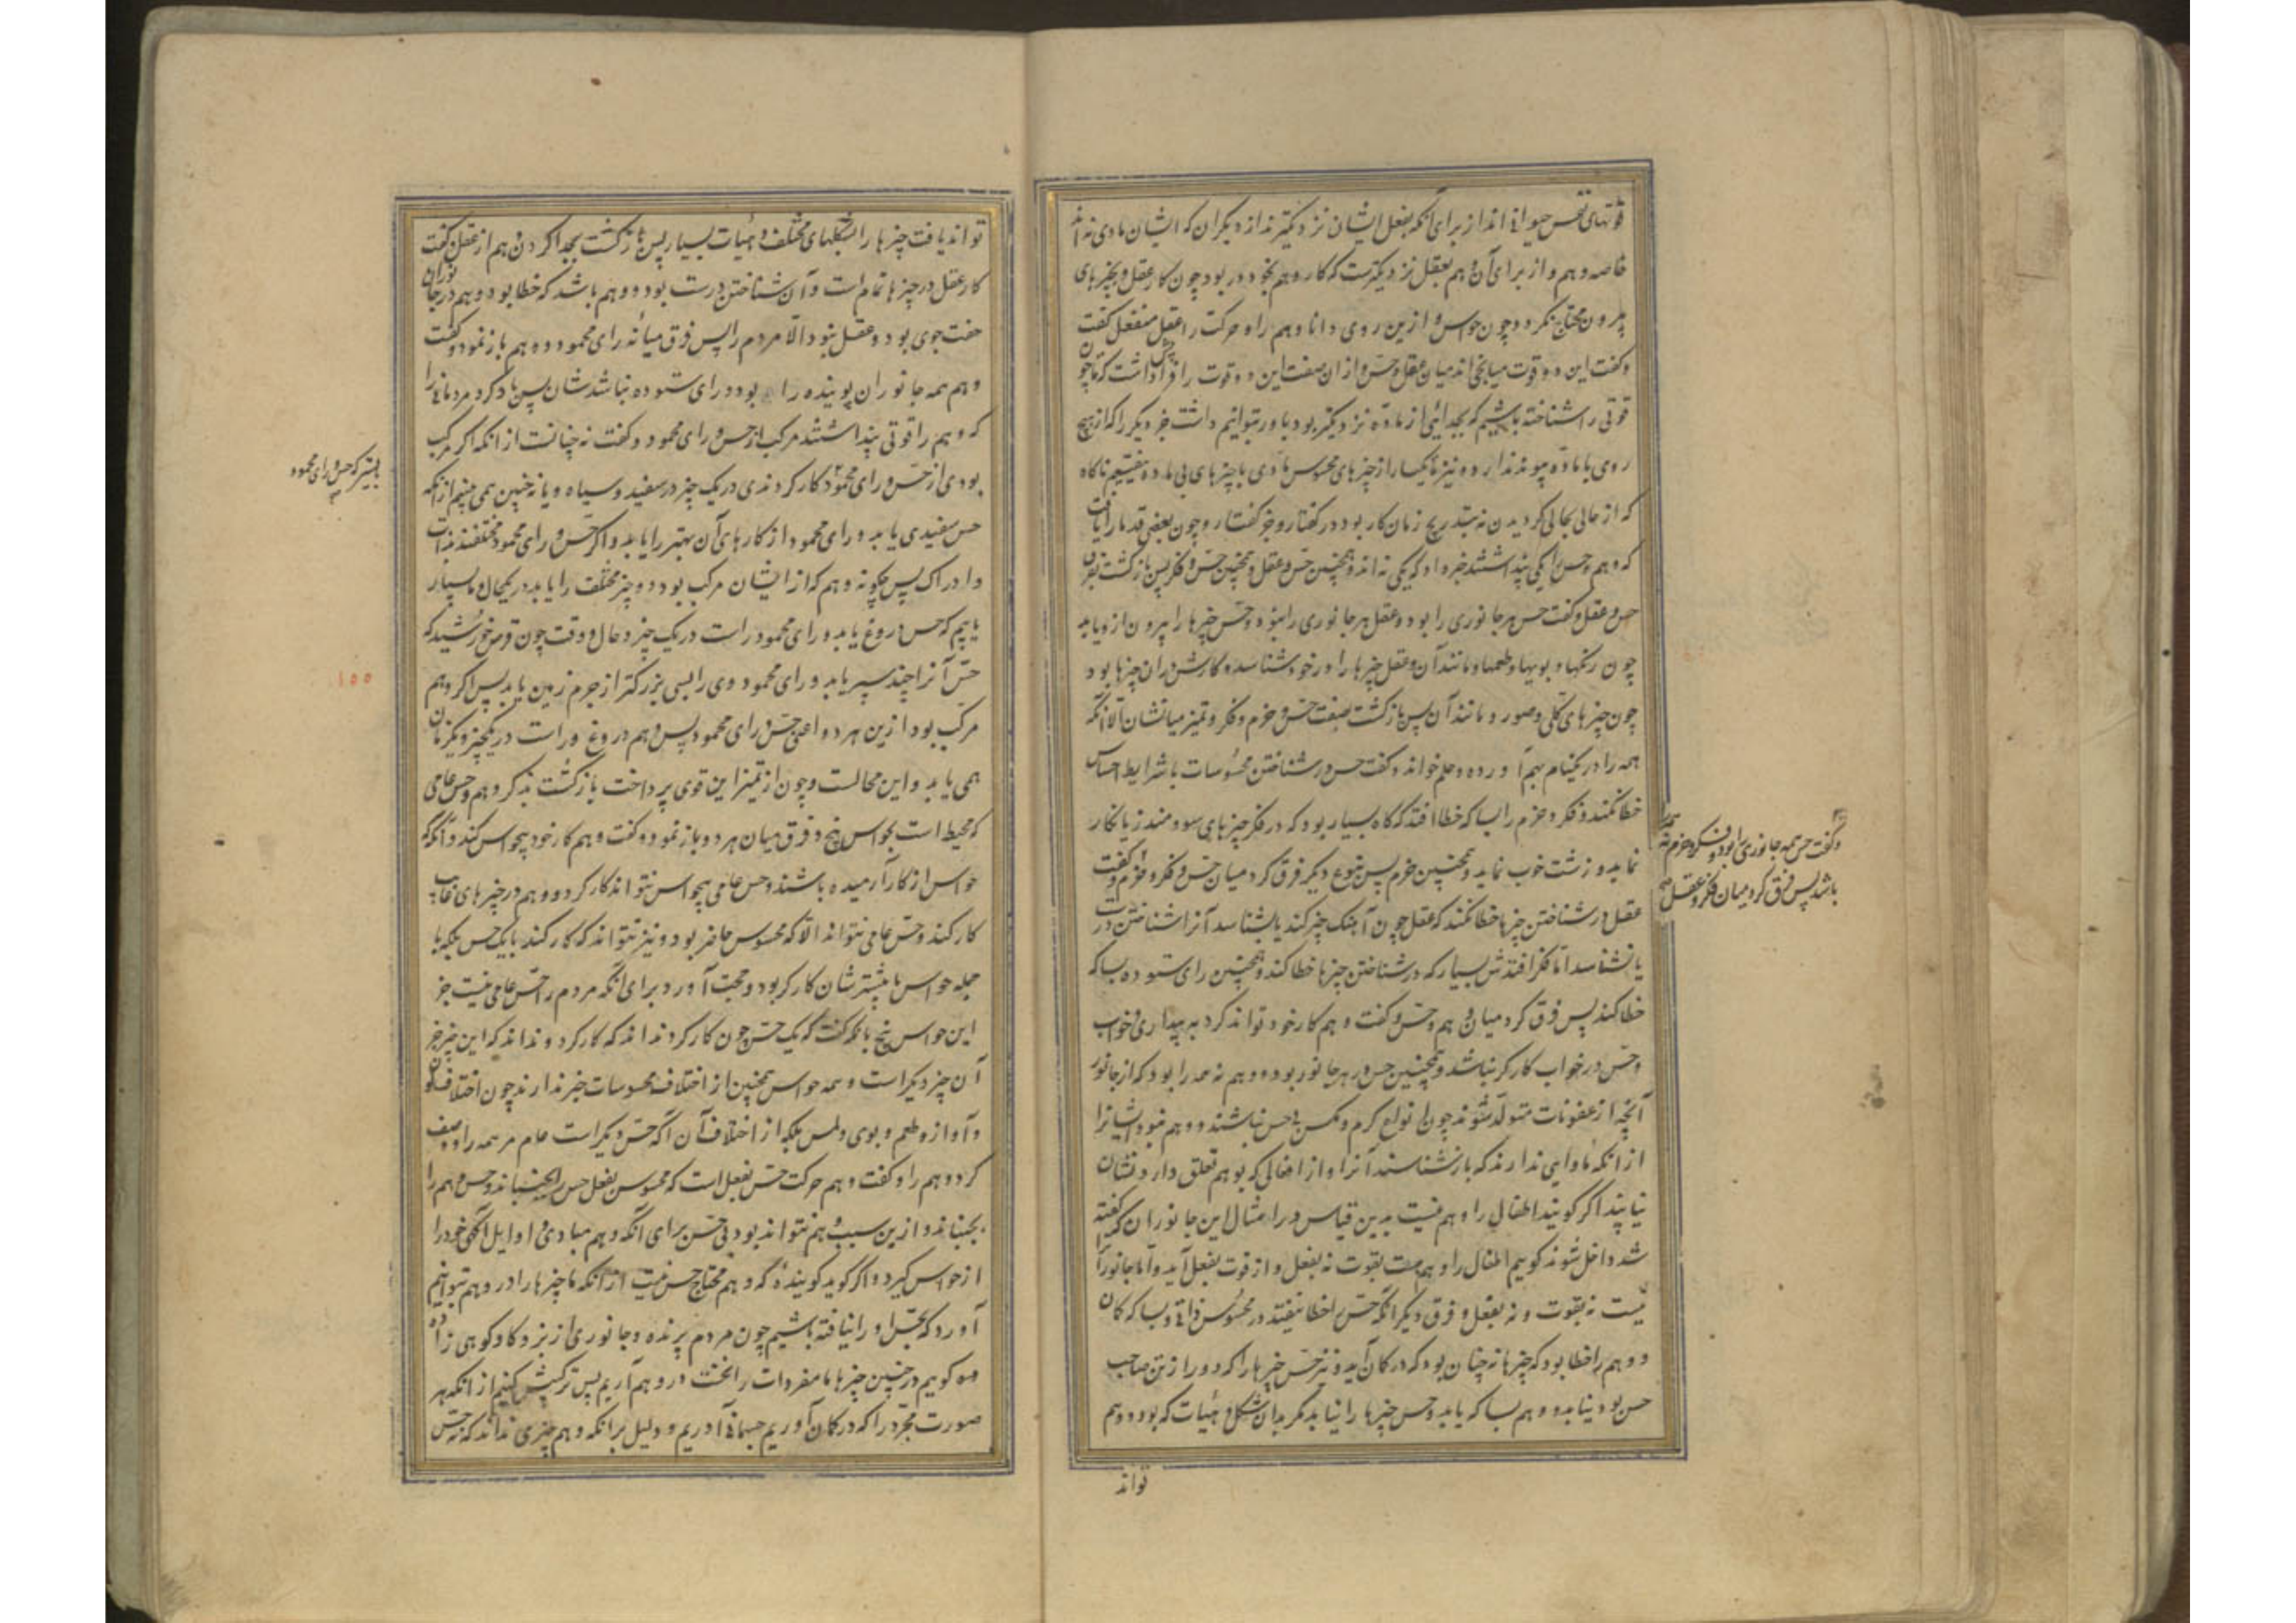 قوتهای نفس حیوانی اند از برای آنکه بفعل ایشان نزدیکترند از دیگران که ایشان مادی نه اند
خاصه وهم و از برای آن وهم بعقل نزدیکترست که کار وهم بخود در بود چون کار عقل و بچیزهای
بیرون محتاج نگردد چون حواس و ازین روی دانا وهم را و حرکت را عقل منفعل گفت
و گفت این دو قوت میانجی اند میان عقل و حس و از آن صفت این دو قوت را فرا داشت که تا چون
قوتی را شناخته باشیم که بجدائی از ماده نزدیکتر بود باور توانیم داشت خبر دیگر را که از هیچ
روی با ماده پیوند ندارد و نیز تا یکبار از چیزهای محسوس مادی با چیزهای بی ماده نیفتیم ناگاه
که از حالی بحالی گردیدن نه بتدریج زیان کار بود در گفتار و جز گفتار و چون بعضی قدما را یافت
که وهم و حس را یکی پنداشتند خبر داد که یکی نه اند و همچنین حس و عقل و همچنین حس و فکر پس بازگشت بفرق
حس و عقل و گفت حس هر جانوری را بود و عقل هر جانوری را نبود و حس چیزها را بیرون از و یابد
چون رنگها و بویها و طعمها و مانند آن و عقل چیزها را در خود شناسد و کارش در آن چیزها بود
چون چیزهای کلی و صور و مانند آن پس بازگشت بصفت حس و حزم و فکر و تمیز میانشان الا آنکه
همه را در یکنام بهم آورده و علم خواند و گفت حس در شناختن محسوسات با شرایط احساس
خطا نکند و فکر و حزم را بسا که خطا افتد که گاه بسیار بود که در فکر چیزهای سودمند زیانکار
نماید و زشت خوب نماید و همچنین حزم پس بنوع دیگر فرق کرد میان حس و فکر و حزم و گفت
عقل در شناختن چیزها خطا نکند که عقل چون آهنگ چیز کند یا بشناسد آنرا شناختن درست
یا نشناسد اما فکر افتدش بسیار که در شناختن چیزها خطا کند و همچنین رای ستوده بسا که
خطا کند پس فرق کرد میان وهم و حس و گفت وهم کار خود تواند کرد به بیداری و خواب
و حس در خواب کارگر نباشد و همچنین حس در هر جانور بود و وهم نه همه را بود که از جانور
آنچه از عفونات متولد شوند چون انواع کرم و مگس بی حس نباشند و وهم نبود ایشانرا
از آنکه ماوایی ندارند که باز شناسند آنرا و از افعالی که بوهم تعلق دارد نشان
نیابند اگر گویند اطفال را وهم نیست بدین قیاس در امثال این جانوران که گفته
شد داخل شوند گوییم اطفال را وهم هست بقوت نه بفعل و از قوت بفعل آید و اما جانور را
نیست نه بقوت و نه بفعل و فرق دیگر آنکه حس را خطا نیفتد در محسوس ذاتی و بسا که گمان
و وهم را خطا بود که چیزها نه چنان بود که در گمان آید و نیز حس چیزها را که دور از تن صاحب
حس بود نیابد و وهم بسا که یابد و حس چیزها را نیابد مگر بدان شکل و هیات که بود و وهم
تواند
و گفت حس همه جانوری را بود و فکر و حزم نه
باشد پس فرق کرد میان فکر و عقل صح
تواند یافت چیزها را بشکلهای مختلف و هیات بسیار پس بازگشت بجدا کردن وهم از عقل گفت
کار عقل در چیزها تمام است و آن شناختن درست بود و وهم باشد که خطا بود و وهم در جانوران
جفت جوی بود و عقل نبود الا مردم را پس فرق میانه رای محمود و وهم باز نمود و گفت
وهم همه جانوران پوینده را بود و رای ستوده نباشد شان پس یاد کرد مردمانی را
که وهم را قوتی پنداشتند مرکب از حس و رای محمود و گفت نه چنانست از آنکه اگر مرکب
بودی از حس و رای محمود کار کردندی در یک چیز در سفید و سیاه و یا نه چنین همی بینم از آنکه
حس سفیدی یابد و رای محمود از کارهای آن بهتر را یابد و اگر حس و رای محمود مختلفند بذات
و ادراک پس چگونه وهم که از ایشان مرکب بود دو چیز مختلف را یابد در یکحال و ما بسیار
یابیم که حس دروغ یابد و رای محمود راست در یک چیز و حال و وقت چون قرص خورشید که
حس آنرا چند سپر یابد و رای محمود وی را بسی بزرگتر از جرم زمین یابد پس اگر وهم
مرکب بود ازین هر دو اعنی حس و رای محمود پس وهم دروغ و راست در یکچیز و یکزمان
همی یابد و این محالست و چون از تمیز این قوی پرداخت بازگشت بذکر وهم و حس عامی
که محیط است بحواس پنج و فرق میان هر دو باز نمود و گفت وهم کار خود بیحواس کند و آنگه که
حواس از کار آرمیده باشند و حس عامی بیحواس نتواند کار کرد و وهم در چیزهای غایب
کار کند و حس عامی نتواند الا که محسوس حاضر بود و نیز نتواند که کار کند با یک حس بلکه با
جمله حواس یا بیشتر شان کارگر بود و حجت آورد برای آنکه مردم را حس عامی نیست جز
این حواس پنج بآنکه گفت که یک حس چون کار کرد نداند که کار کرد و نداند که این چیز جز
آن چیز دیگر است و همه حواس همچنین از اختلاف محسوسات خبر ندارند چون اختلاف لون
و آواز و طعم و بوی و لمس بلکه از اختلاف آن آگه حس دیگر است عام مر همه را و وصف
کرد وهم را و گفت وهم حرکت حس بفعل است که محسوس بفعل حس را بجنباند و حس وهم را
بجنباند و ازین سبب وهم نتواند بود بی حس برای آنکه وهم مبادی و اوایل آگهی خود را
از حواس گیرد و اگر گوید گوینده که وهم محتاج حس نیست از آنکه ما چیزها را در وهم توانیم
آورد که بحس او را نیافته باشیم چون مردم پرنده و جانوری از بز و گاو کوهی زاده
گوییم در چنین چیزها ما مفردات را نخست در وهم آریم پس ترکیبش کنیم از آنکه هر
صورت مجرد را که در گمان آوریم جسمانی آوریم و دلیل برآنکه وهم چیزی نداند که نه حس
بهتر که حس و رای محمود
۱۵۵